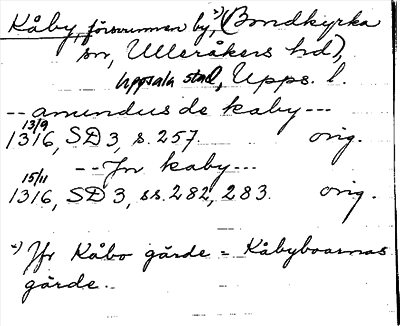 Kåby, försvunnen by, ˣ⁾ (Bondkyrka
sn, Ulleråkers hd),
Uppsala stad, Upps. l.
-- amundus de kaby ---
13/9
1316, SD 3, s. 257. orig.
-- Jn kaby ---
15/11
1316, SD 3, ss. 282, 283. orig.
ˣ⁾ Jfr Kåbo gärde = Kåbyboarnas
gärde.